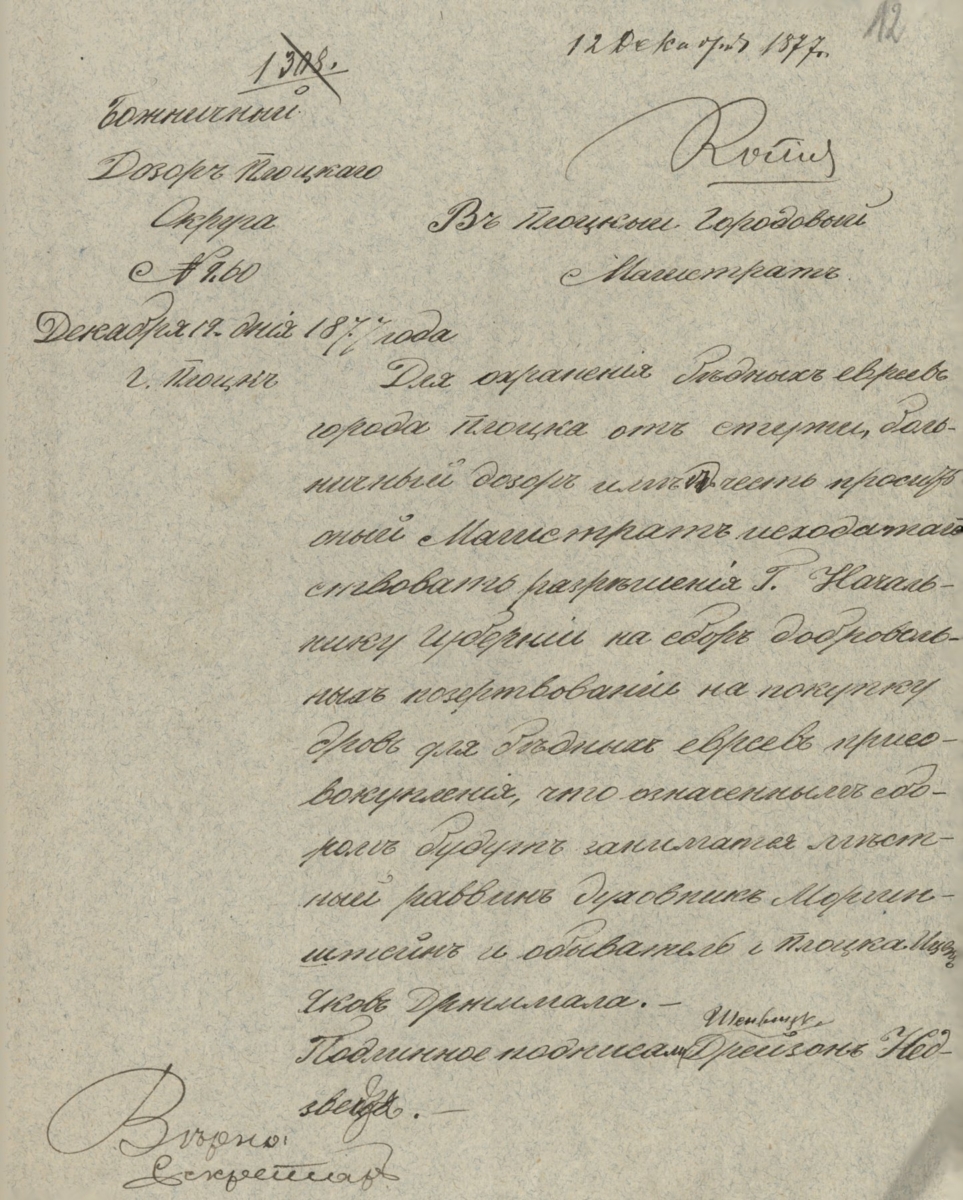 12
12 Декабря 1877 г.
1308.
Божничный
Дозоръ Плоцкаго
Округа
№ 260
Декабря 12 дня 1877 года
г. Плоцкъ
Копія
Въ Плоцкый Городовый
Магистратъ.
Для охраненія бѣдныхъ евреевъ
города Плоцка отъ стержи, боль-
ничный дозоръ имѣетъ честь просить
оный Магистратъ исходатай
ствовать разрѣшенія Г. Началь-
нику Губерніи на сборъ доброволь-
ныхъ позертвованій на покупку
дровъ для бѣдныхъ евреевъ присо-
вокупленія, что означеннымъ сбо-
ромъ будутъ заниматся мѣст-
ный раввинъ духовникъ Моргин-
штейнъ и обыватель г Плоцка Ицекъ
Яковъ Држимала. —
Подлинное подписали Дрейзонъ Нед-
звецкъ. —
Вѣрно:
Секретар